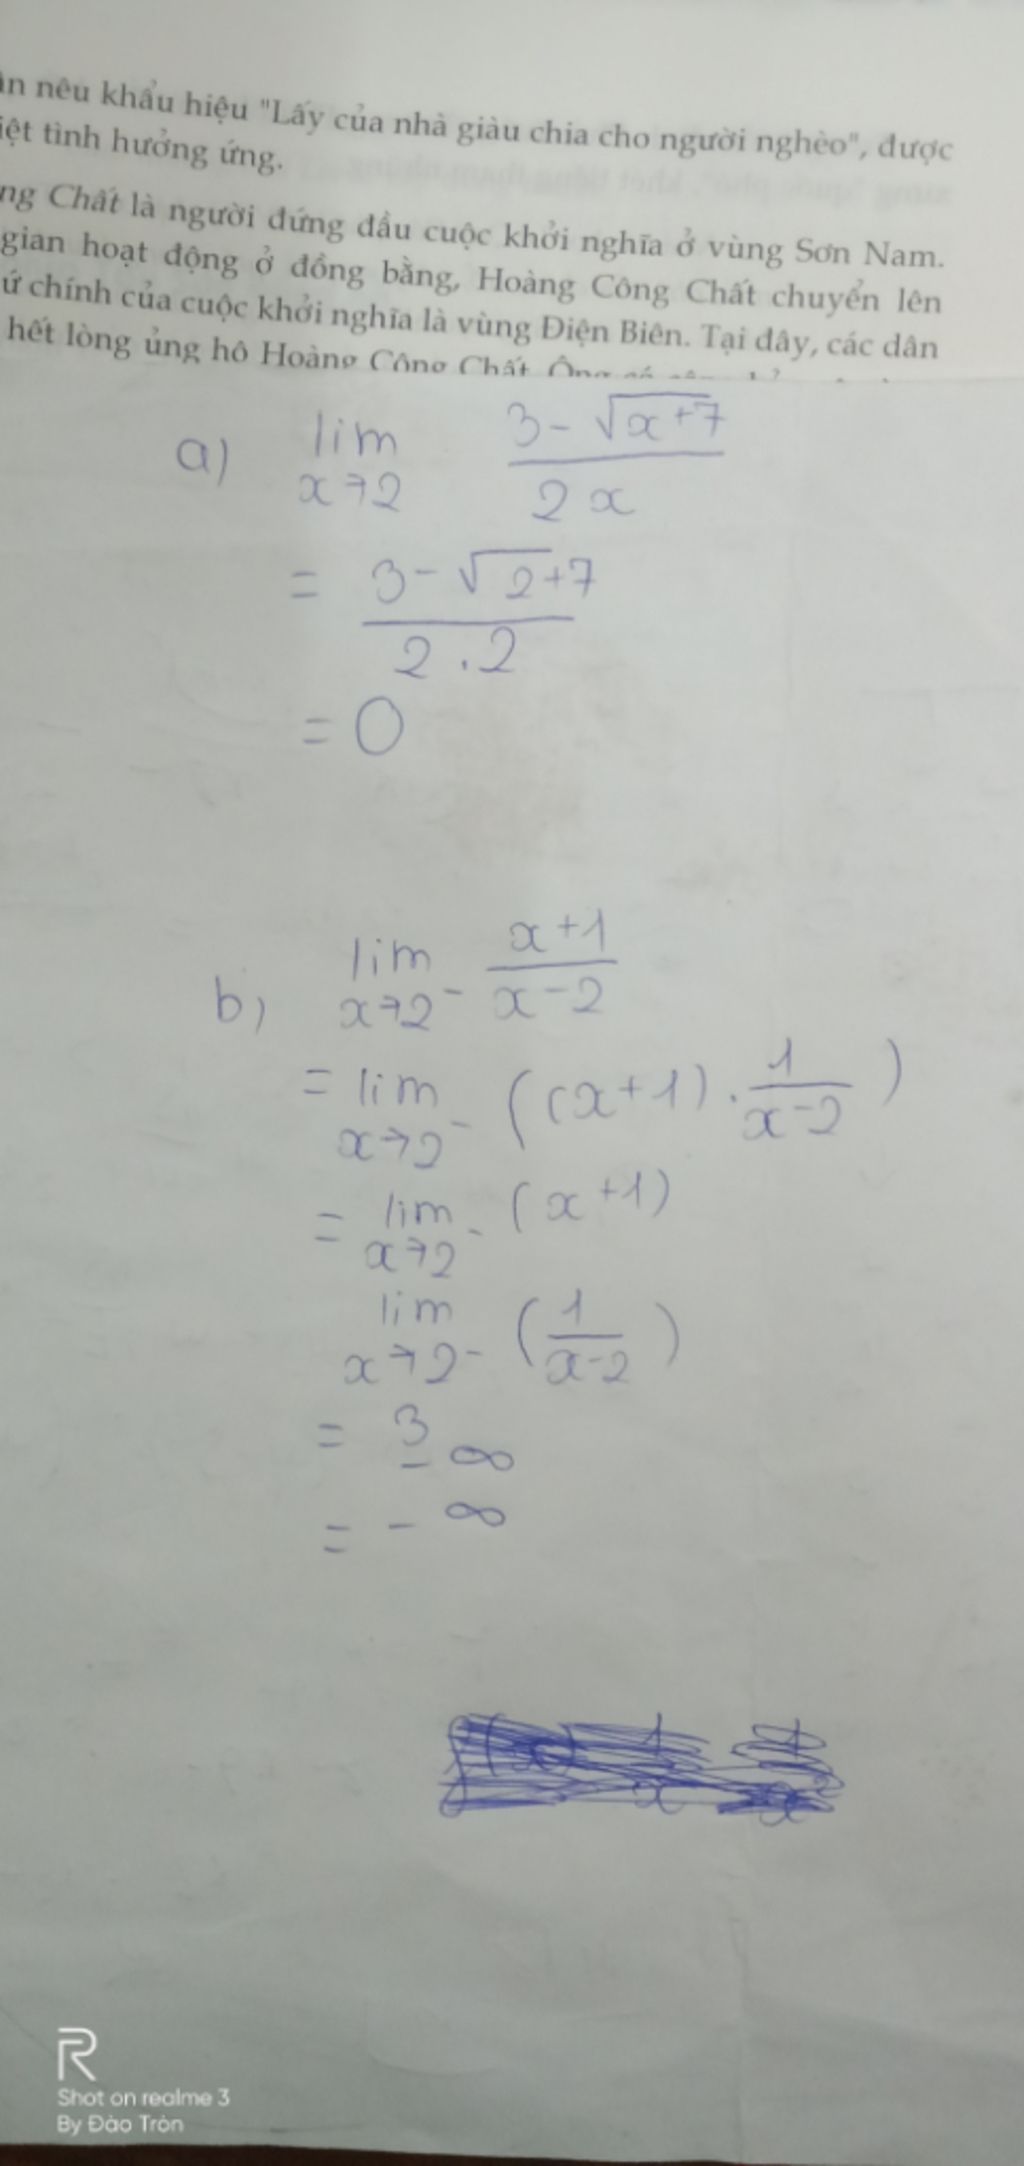 ân nêu khẩu hiệu "Lấy của nhà giàu chia cho người nghèo", được
iệt tình hưởng ứng.
ng Chất là người đứng đầu cuộc khởi nghĩa ở vùng Sơn Nam.
gian hoạt động ở đồng bằng, Hoàng Công Chất chuyển lên
ứ chính của cuộc khởi nghĩa là vùng Điện Biên. Tại đây, các dân
hết lòng ủng hộ Hoàng Công Chất. Ông có
a) lim x→2 (3 - √(x+7)) / (2x)
= (3 - √2+7) / (2.2)
= 0
b) lim x→2⁻ (x+1)/(x-2)
= lim x→2⁻ ((x+1) . 1/(x-2))
= lim x→2⁻ (x+1)
lim x→2⁻ (1/(x-2))
= 3 -∞
= -∞
R
Shot on realme 3
By Đào Tròn